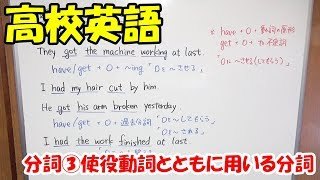 高校英語
They got the machine working at last.
have/get + O + ~ing 「Oを~させる」
I had my hair cut by him.
He got his arm broken yesterday.
have/get + O + 過去分詞 「Oを~してもらう」
「Oを~される」
I had the work finished at last
* have + O + 動詞の原形
get + O + to 不定詞
「Oに~させる(してもらう)」
分詞③使役動詞とともに用いる分詞